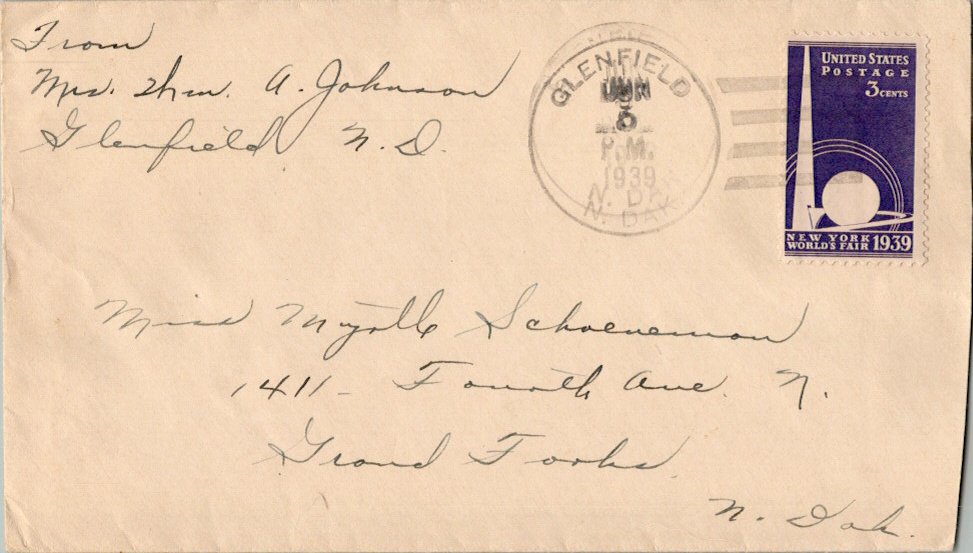 From
Mrs. Wm. A. Johnson
Glenfield N. D.
GLENFIELD
JUN
P.M.
1939
N. DAK.
UNITED STATES
POSTAGE
3 CENTS
NEW YORK
WORLD'S FAIR 1939
Miss Myrtle Schoeneman
1411 - Fourth Ave. N.
Grand Forks
N. Dak.